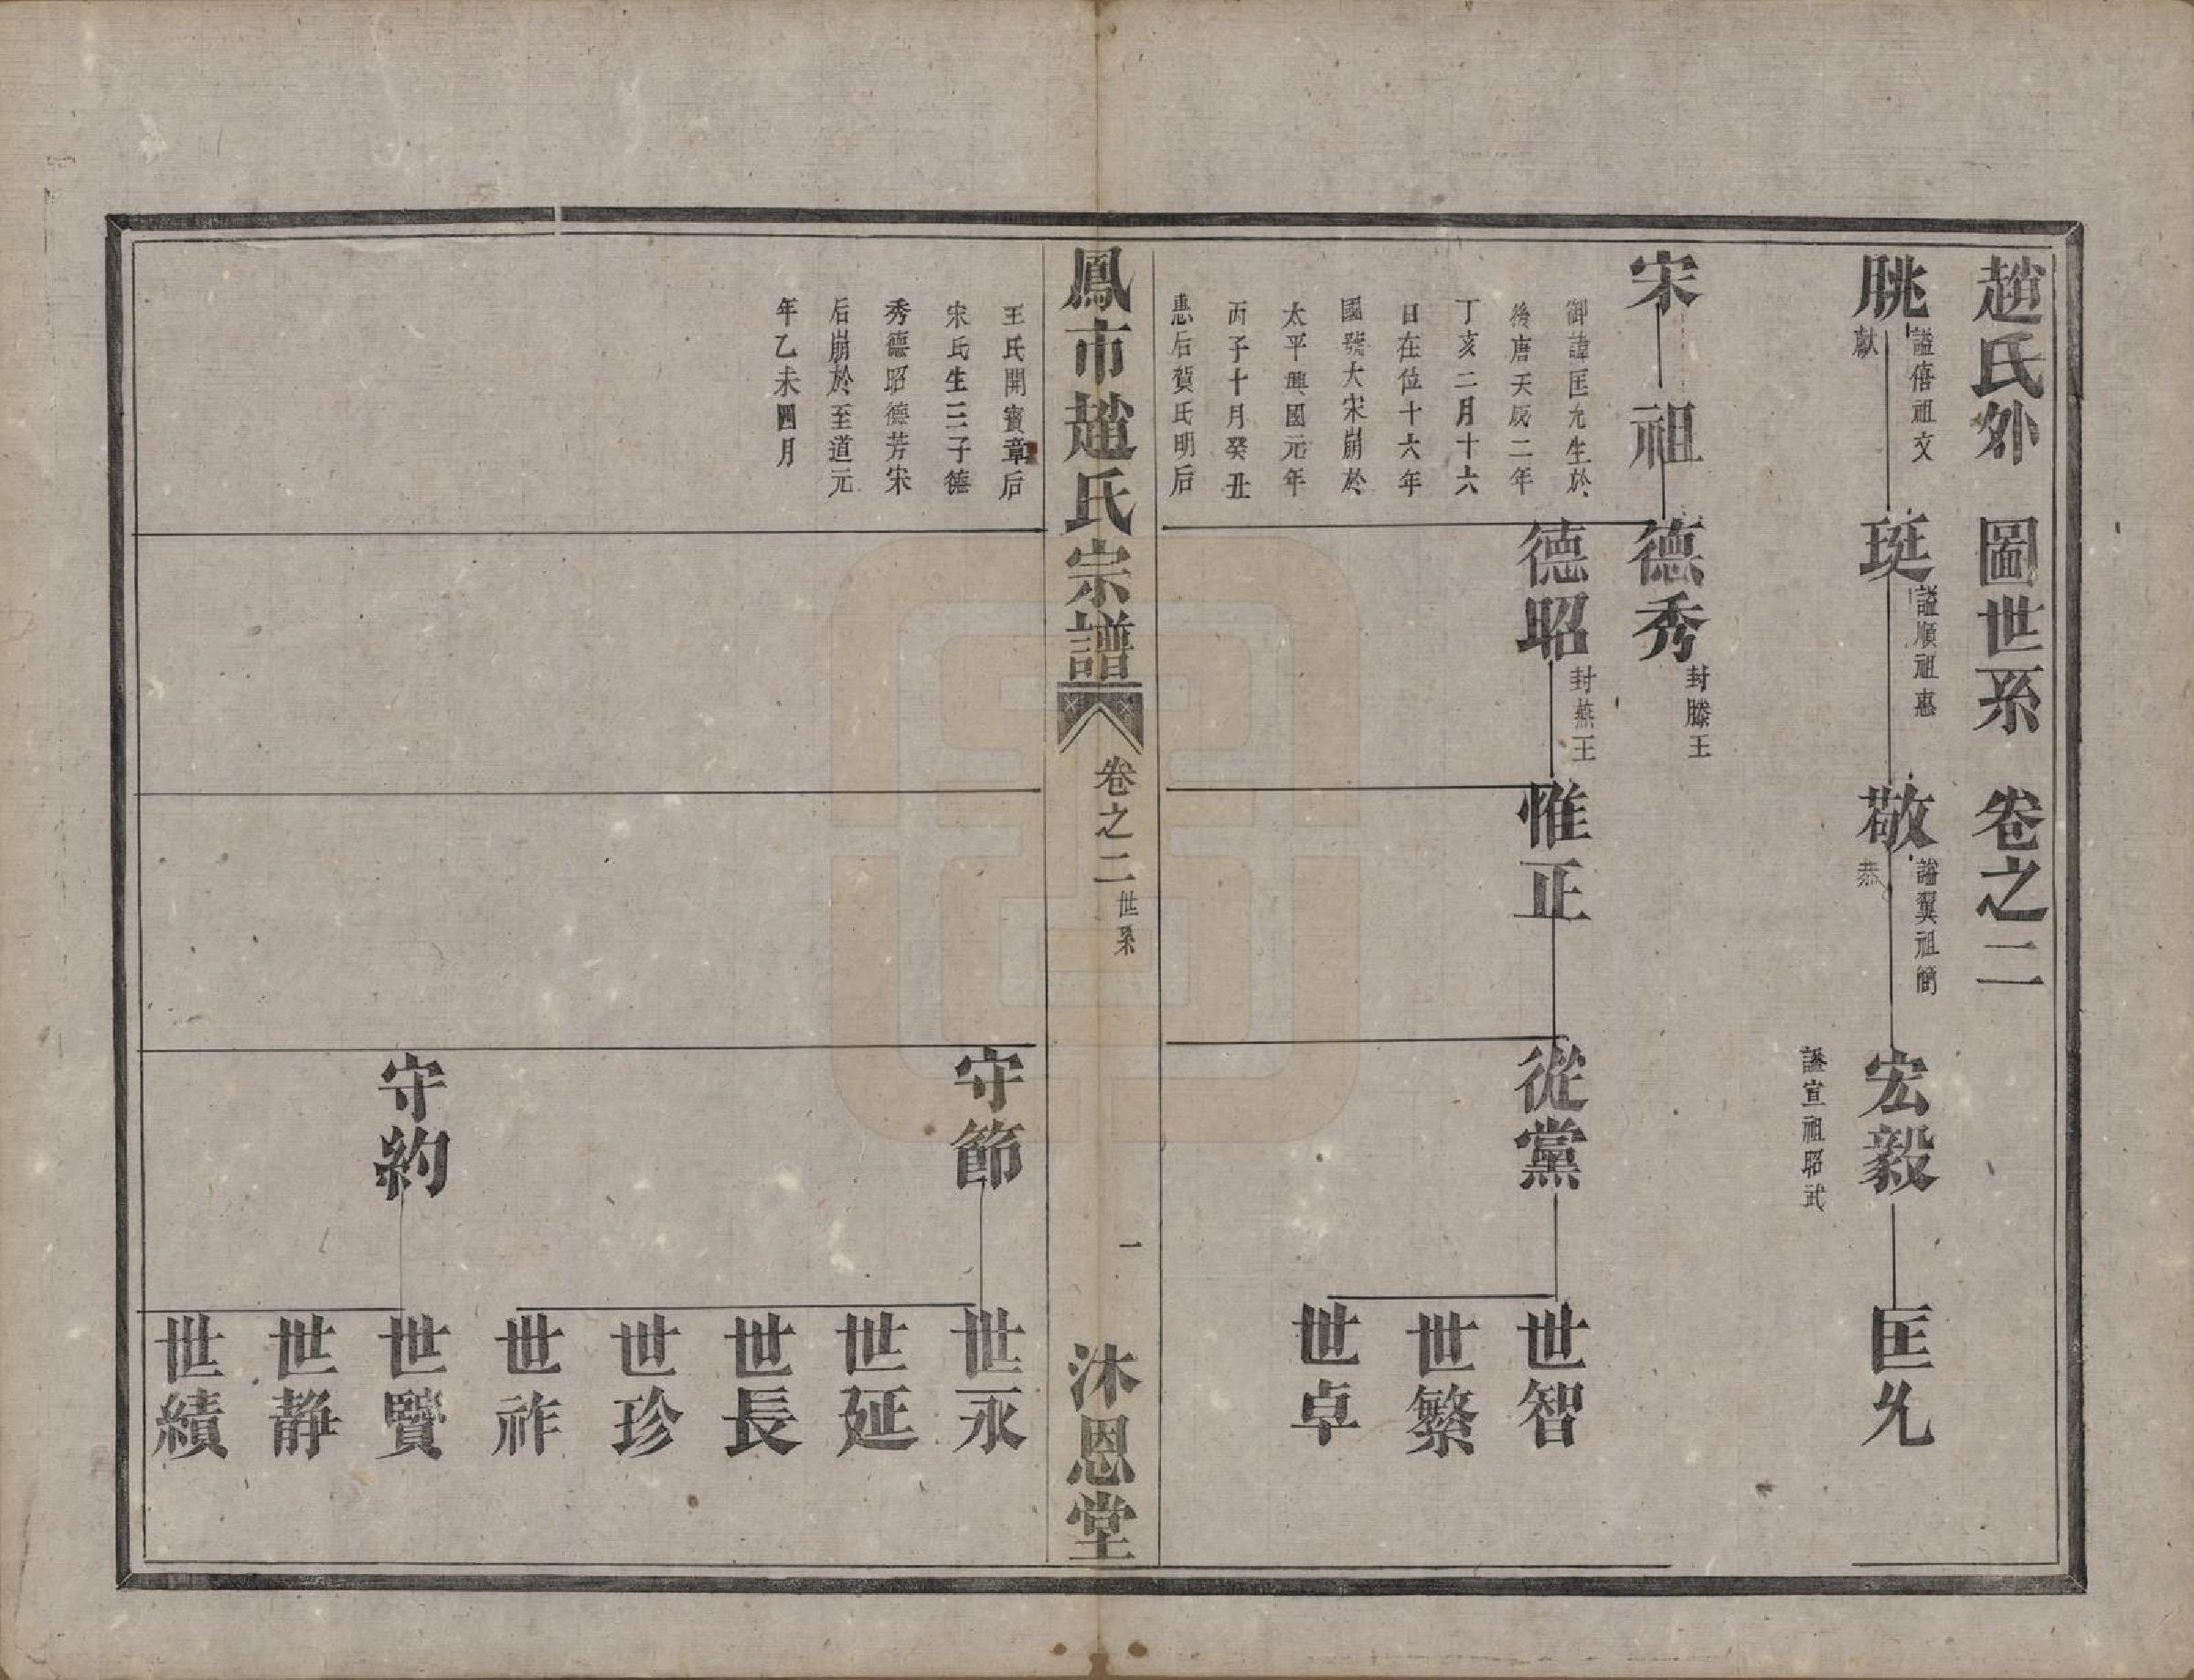 趙氏外圖世系 卷之二
脁 謚僖祖文
獻
珽 謚順祖惠
敬 謚翼祖簡
恭
宏毅
謚宣祖昭武
匡允
宋祖
御諱匡允生於
後唐天成二年
丁亥二月十六
日在位十六年
國號大宋崩於
太平興國元年
丙子十月癸丑
惠后賀氏明后
德秀 封滕王
德昭 封燕王
惟正
從黨
世智
世繁
世卓
鳳市趙氏宗譜
卷之二 世系
一
沐恩堂
王氏開寶章后
宋氏生三子德
秀德昭德芳宋
后崩於至道元
年乙未四月
守節
世永
世延
世長
世珍
世祚
守約
世覽
世靜
世績